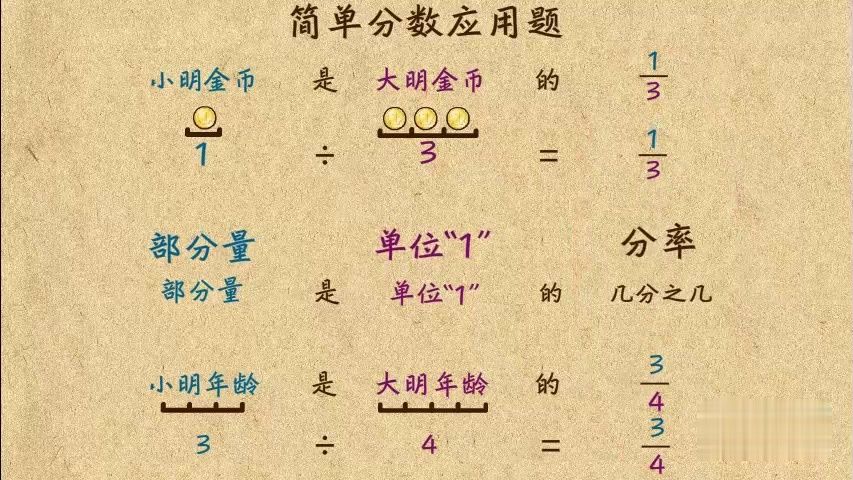 简单分数应用题
小明金币 是 大明金币 的 1/3
1 ÷ 3 = 1/3
部分量 单位“1” 分率
部分量 是 单位“1” 的 几分之几
小明年龄 是 大明年龄 的 3/4
3 ÷ 4 = 3/4